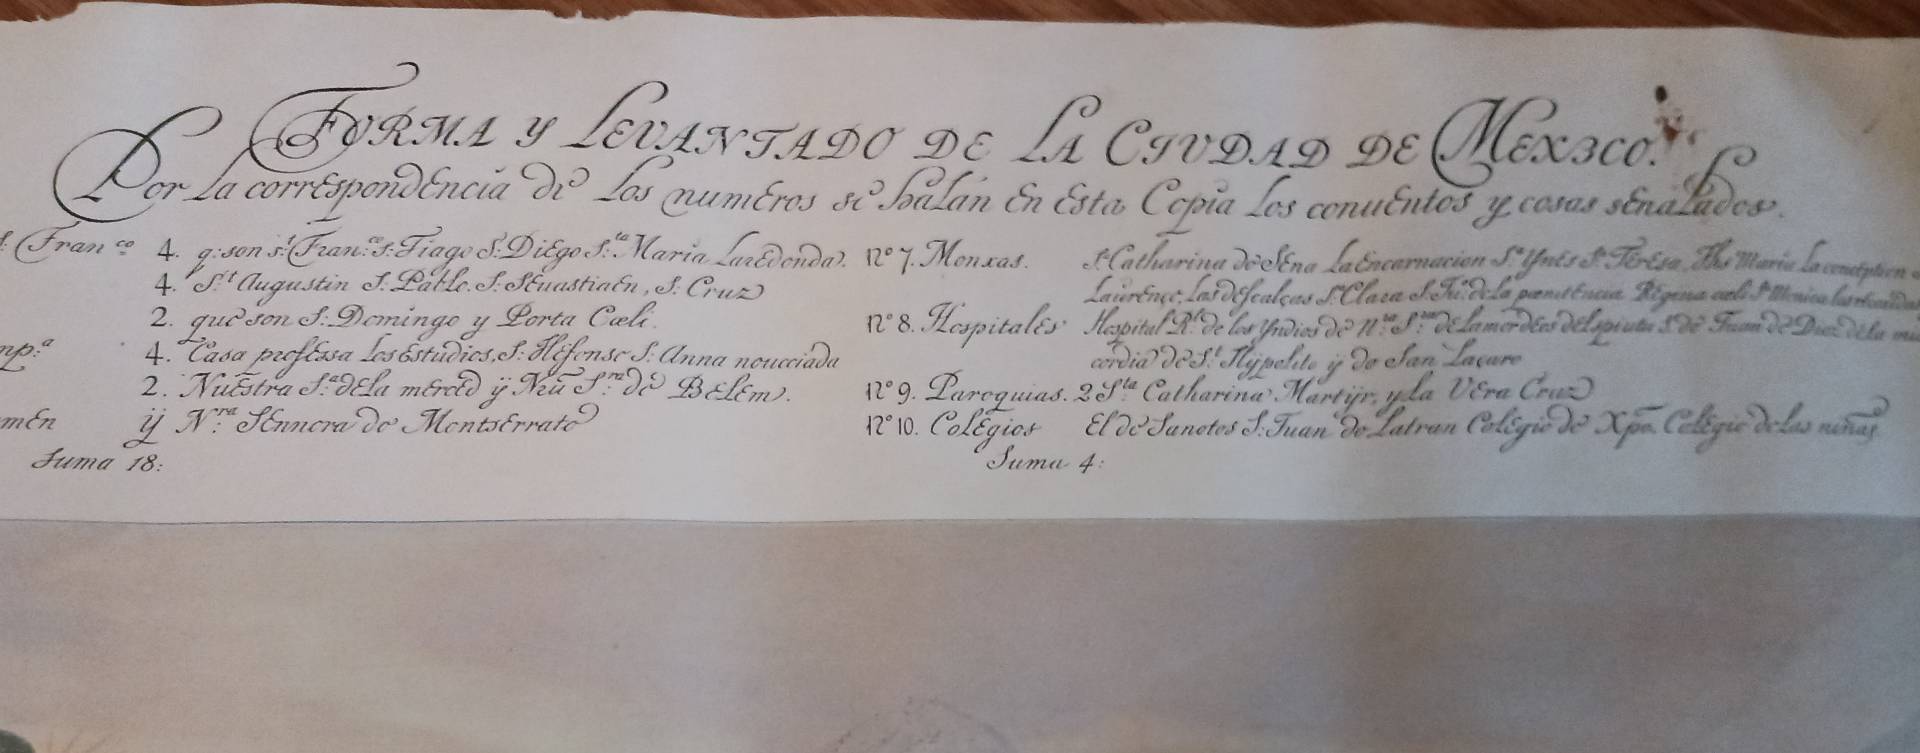 FORMA Y LEVANTADO DE LA CIVDAD DE MEXICO.
Por la correspondencia de los numeros se halan en esta Copia los conuentos y cosas senalados.
S. Fran.co 4. q: son s.t Fran.co S. Tiago S. Diego S.ta Maria Laredonda.
4. S.t Augustin S. Pablo. S. Seuastiaen, S. Cruz
2. que son S. Domingo y Porta Cœli.
mp.a 4. Casa professa Los Estudios, S. Ildefonso S. Anna noucciada
2. Nuestra S.a dela merced ÿ S.ra de Belem.
men ij N.ra Sennora de Montserrate
Suma 18:
N.o 7. Monxas. S. Catharina de Sena La Encarnacion S.a Ynes S. Teresa, Maria La
Laurence, Las descalças S. Clara de la pœnitencia Regina cœli S. Monica
N.o 8. Hospitales Hospital R.l de los Yndios de N.ra S.ra de Juan de Dios de la
cordia de S.t Hÿpolito ÿ de San Laçaro
N.o 9. Paroquias. 2 S.ta Catharina Martÿr, y La Vera Cruz
N.o 10. Colegios El de Sanctos S. Juan de Latran Colegio de Xpō. Colegio de las niñas
Suma 4: